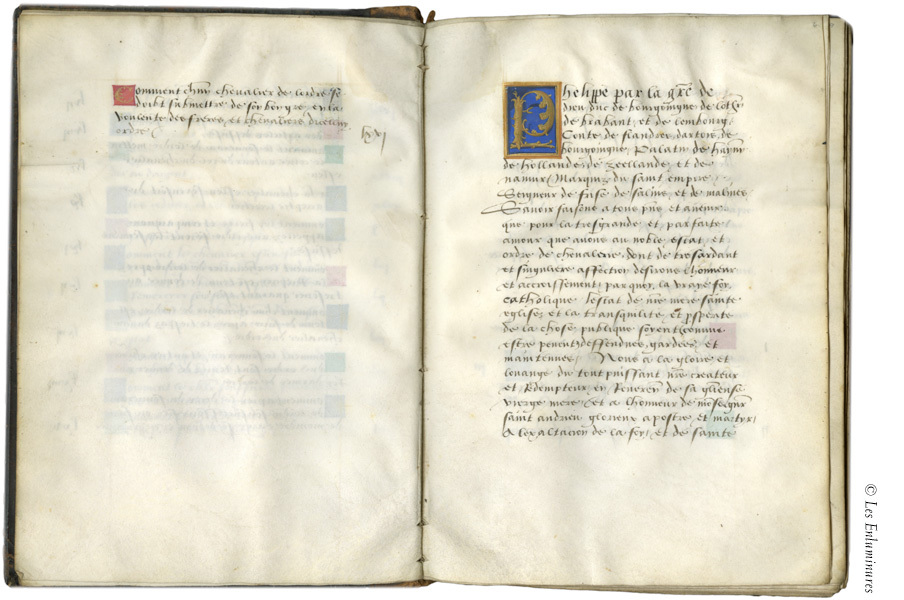 Comment chũn chevalier de lordre se
doibt submettre de son bon gre en la
voulente des freres et chevaliers diceluy
ordre
lxxj
Phelippe par la grãe de
dieu, duc de bourgoingne de lothr
de brabant, et de lembourg,
Conte de flandres, dartois, de
bourgoingne, Palatin de haynn
de hollande, de zeellande, et de
namur, Marquiz du saint empire
Seigneur de frise de salins, et de malines
Savoir faisons a tous pñs et avenir
que pour la tresgrande et parfaite
amour que avons au noble estat et
ordre de chevalerie dont de tresardant
et singuliere affection desirons lhonneur
et accroissement, par quoy, la vraye foy
catholique lestat de nr̃e mere sainte
eglise, et la tranquilite et pspeate
de la chose publique soyent comme
estre peuent deffendues, gardees, et
maintenues, Nous a la gloire et
louange du tout puissant nr̃e createur
et Redempteur, en Reveren de sa glieuse
vierge mere, et a lhonneur de monseignr
saint andrieu glorieux apostre et martyr,
A lexaltacion de la foy, et de sainte
© Les Enluminures